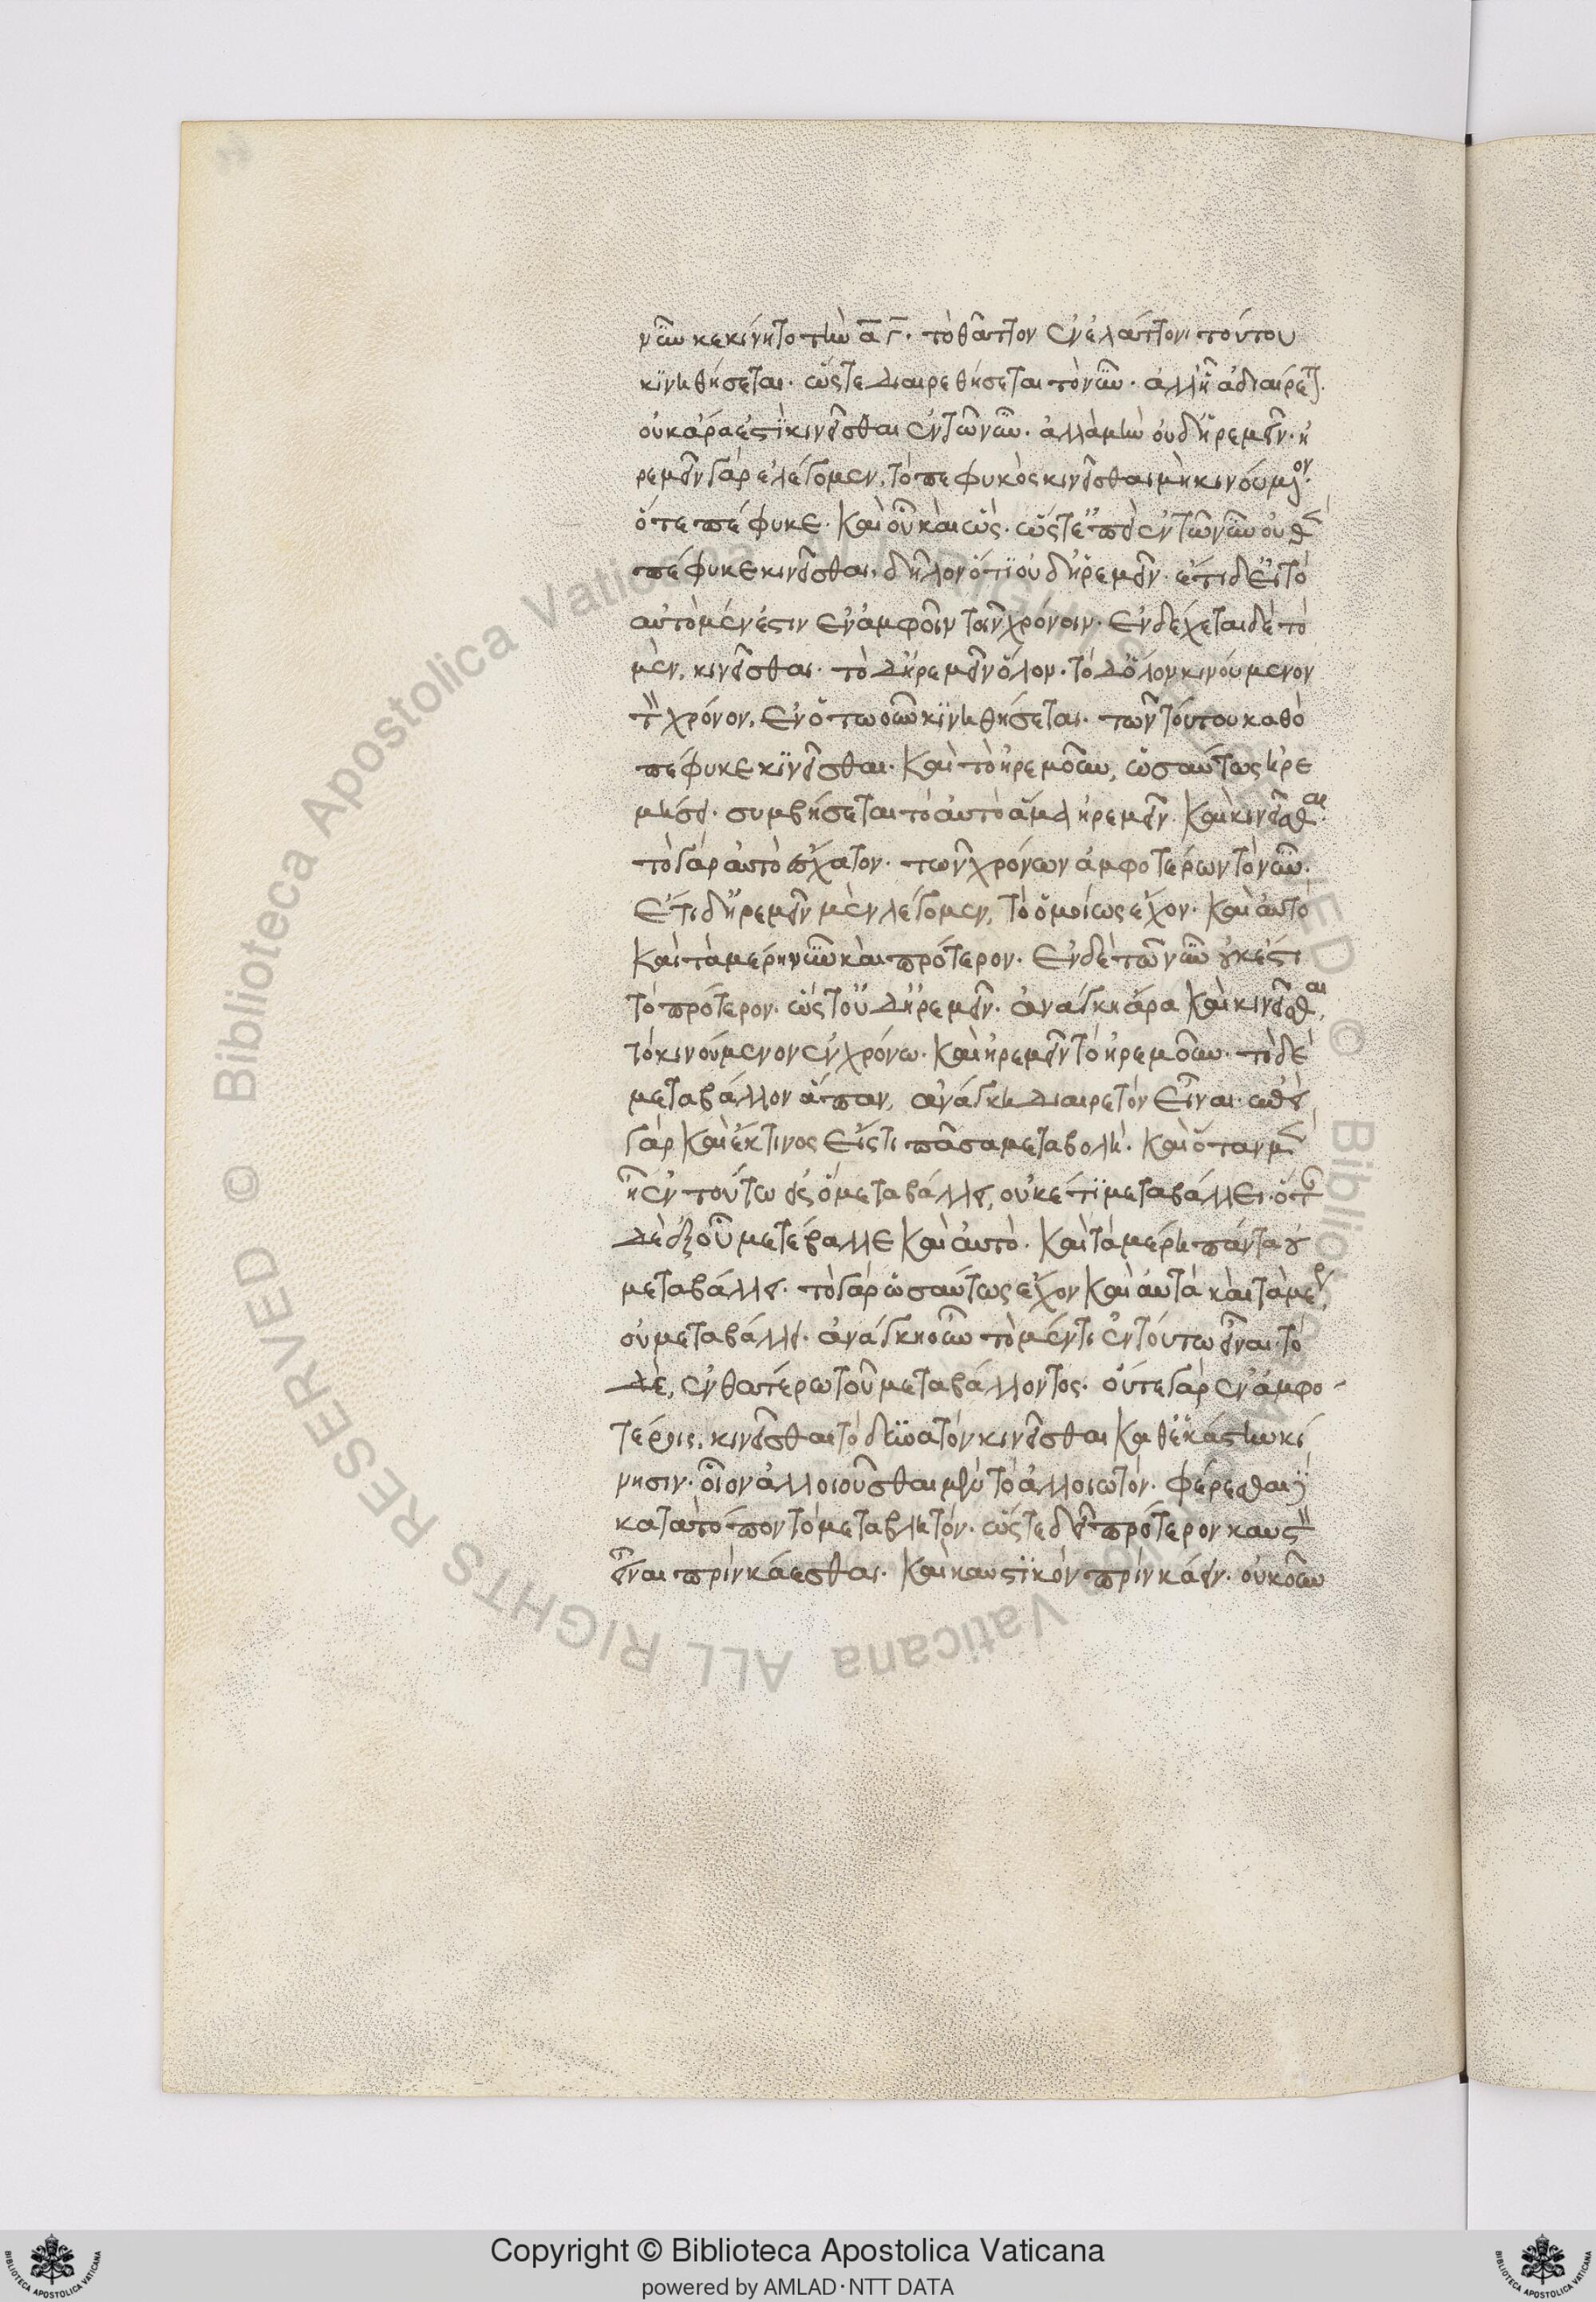 νῦν κεκίνητο τὴν α γ. τὸ θᾶττον ἐν ἐλάττονι τούτου
κινηθήσεται. ὥστε διαιρεθήσεται τὸ νῦν. ἀλλ' ἦν ἀδιαίρετ.
οὐκ ἄρα ἐστὶ κινεῖσθαι ἐν τῶ νῦν. ἀλλὰ μὴν οὐδ' ἠρεμεῖν. ἠ
ρεμεῖν γὰρ ἐλέγομεν, τὸ πεφυκὸς κινεῖσθαι μὴ κινούμενον.
ὅτε πέφυκε. καὶ οὗ καὶ ὥς. ὥστ' ἐπεὶ ἐν τῶ νῦν οὐθὲν
πέφυκε κινεῖσθαι, δῆλον ὅτι οὐδ' ἠρεμεῖν. ἔτι δ' εἰ τὸ
αὐτὸ μέν ἐστιν ἐν ἀμφοῖν τοῖν χρόνοιν. ἐνδέχεται δὲ τὸ
μὲν, κινεῖσθαι. τὸ δ' ἠρεμεῖν ὅλον. τὸ δ' ὅλον κινούμενον
τὸν χρόνον, ἐν ὁτωοῦν κινηθήσεται. τῶν τούτου καθὸ
πέφυκε κινεῖσθαι. καὶ τὸ ἠρεμοῦν, ὡσαύτως ἠρε
μήσει. συμβήσεται τὸ αὐτὸ ἅμα ἠρεμεῖν. καὶ κινεῖσθαι.
τὸ γὰρ αὐτὸ ἔσχατον. τῶν χρόνων ἀμφοτέρων τὸ νῦν.
ἔτι δ' ἠρεμεῖν μὲν λέγομεν, τὸ ὁμοίως ἔχον. καὶ αὐτὸ
καὶ τὰ μέρη νῦν καὶ πρότερον. ἐν δὲ τῶ νῦν οὐκ ἔστι
τὸ πρότερον. ὥστ' οὐδ' ἠρεμεῖν. ἀνάγκη ἄρα καὶ κινεῖσθαι,
τὸ κινούμενον ἐν χρόνω. καὶ ἠρεμεῖν τὸ ἠρεμοῦν. τὸ δὲ
μεταβάλλον ἅπαν, ἀνάγκη διαιρετὸν εἶναι.
γὰρ καὶ ἔκ τινος εἴς τι πᾶσα μεταβολή. καὶ ὅταν μὲν
ἦ ἐν τούτω εἰς ὃ μεταβάλλει, οὐκέτι μεταβάλλει. ὅταν
δὲ ἐξ οὗ μετέβαλλε καὶ αὐτὸ. καὶ τὰ μέρη πάντα οὐ
μεταβάλλει. τὸ γὰρ ὡσαύτως ἔχον καὶ αὐτὰ καὶ τὰ μέρη,
οὐ μεταβάλλει. ἀνάγκη οὖν τὸ μέν τι ἐν τούτω εἶναι. τὸ
δὲ, ἐν θατέρω τοῦ μεταβάλλοντος. οὔτε γὰρ ἐν ἀμφο-
τέροις, κινεῖσθαι τὸ δυνατὸν κινεῖσθαι καθ' ἑκάστην κί
νησιν. οἷον ἀλλοιοῦσθαι μὲν τὸ ἀλλοιωτόν. φέρεσθαι δὲ
κατὰ τόπον τὸ μεταβλητόν. ὥστε δεῖ πρότερον καυστὸν
εἶναι πρὶν κάεσθαι. καὶ καυστικὸν πρὶν κάειν. οὐκοῦν
Copyright © Biblioteca Apostolica Vaticana
powered by AMLAD·NTT DATA